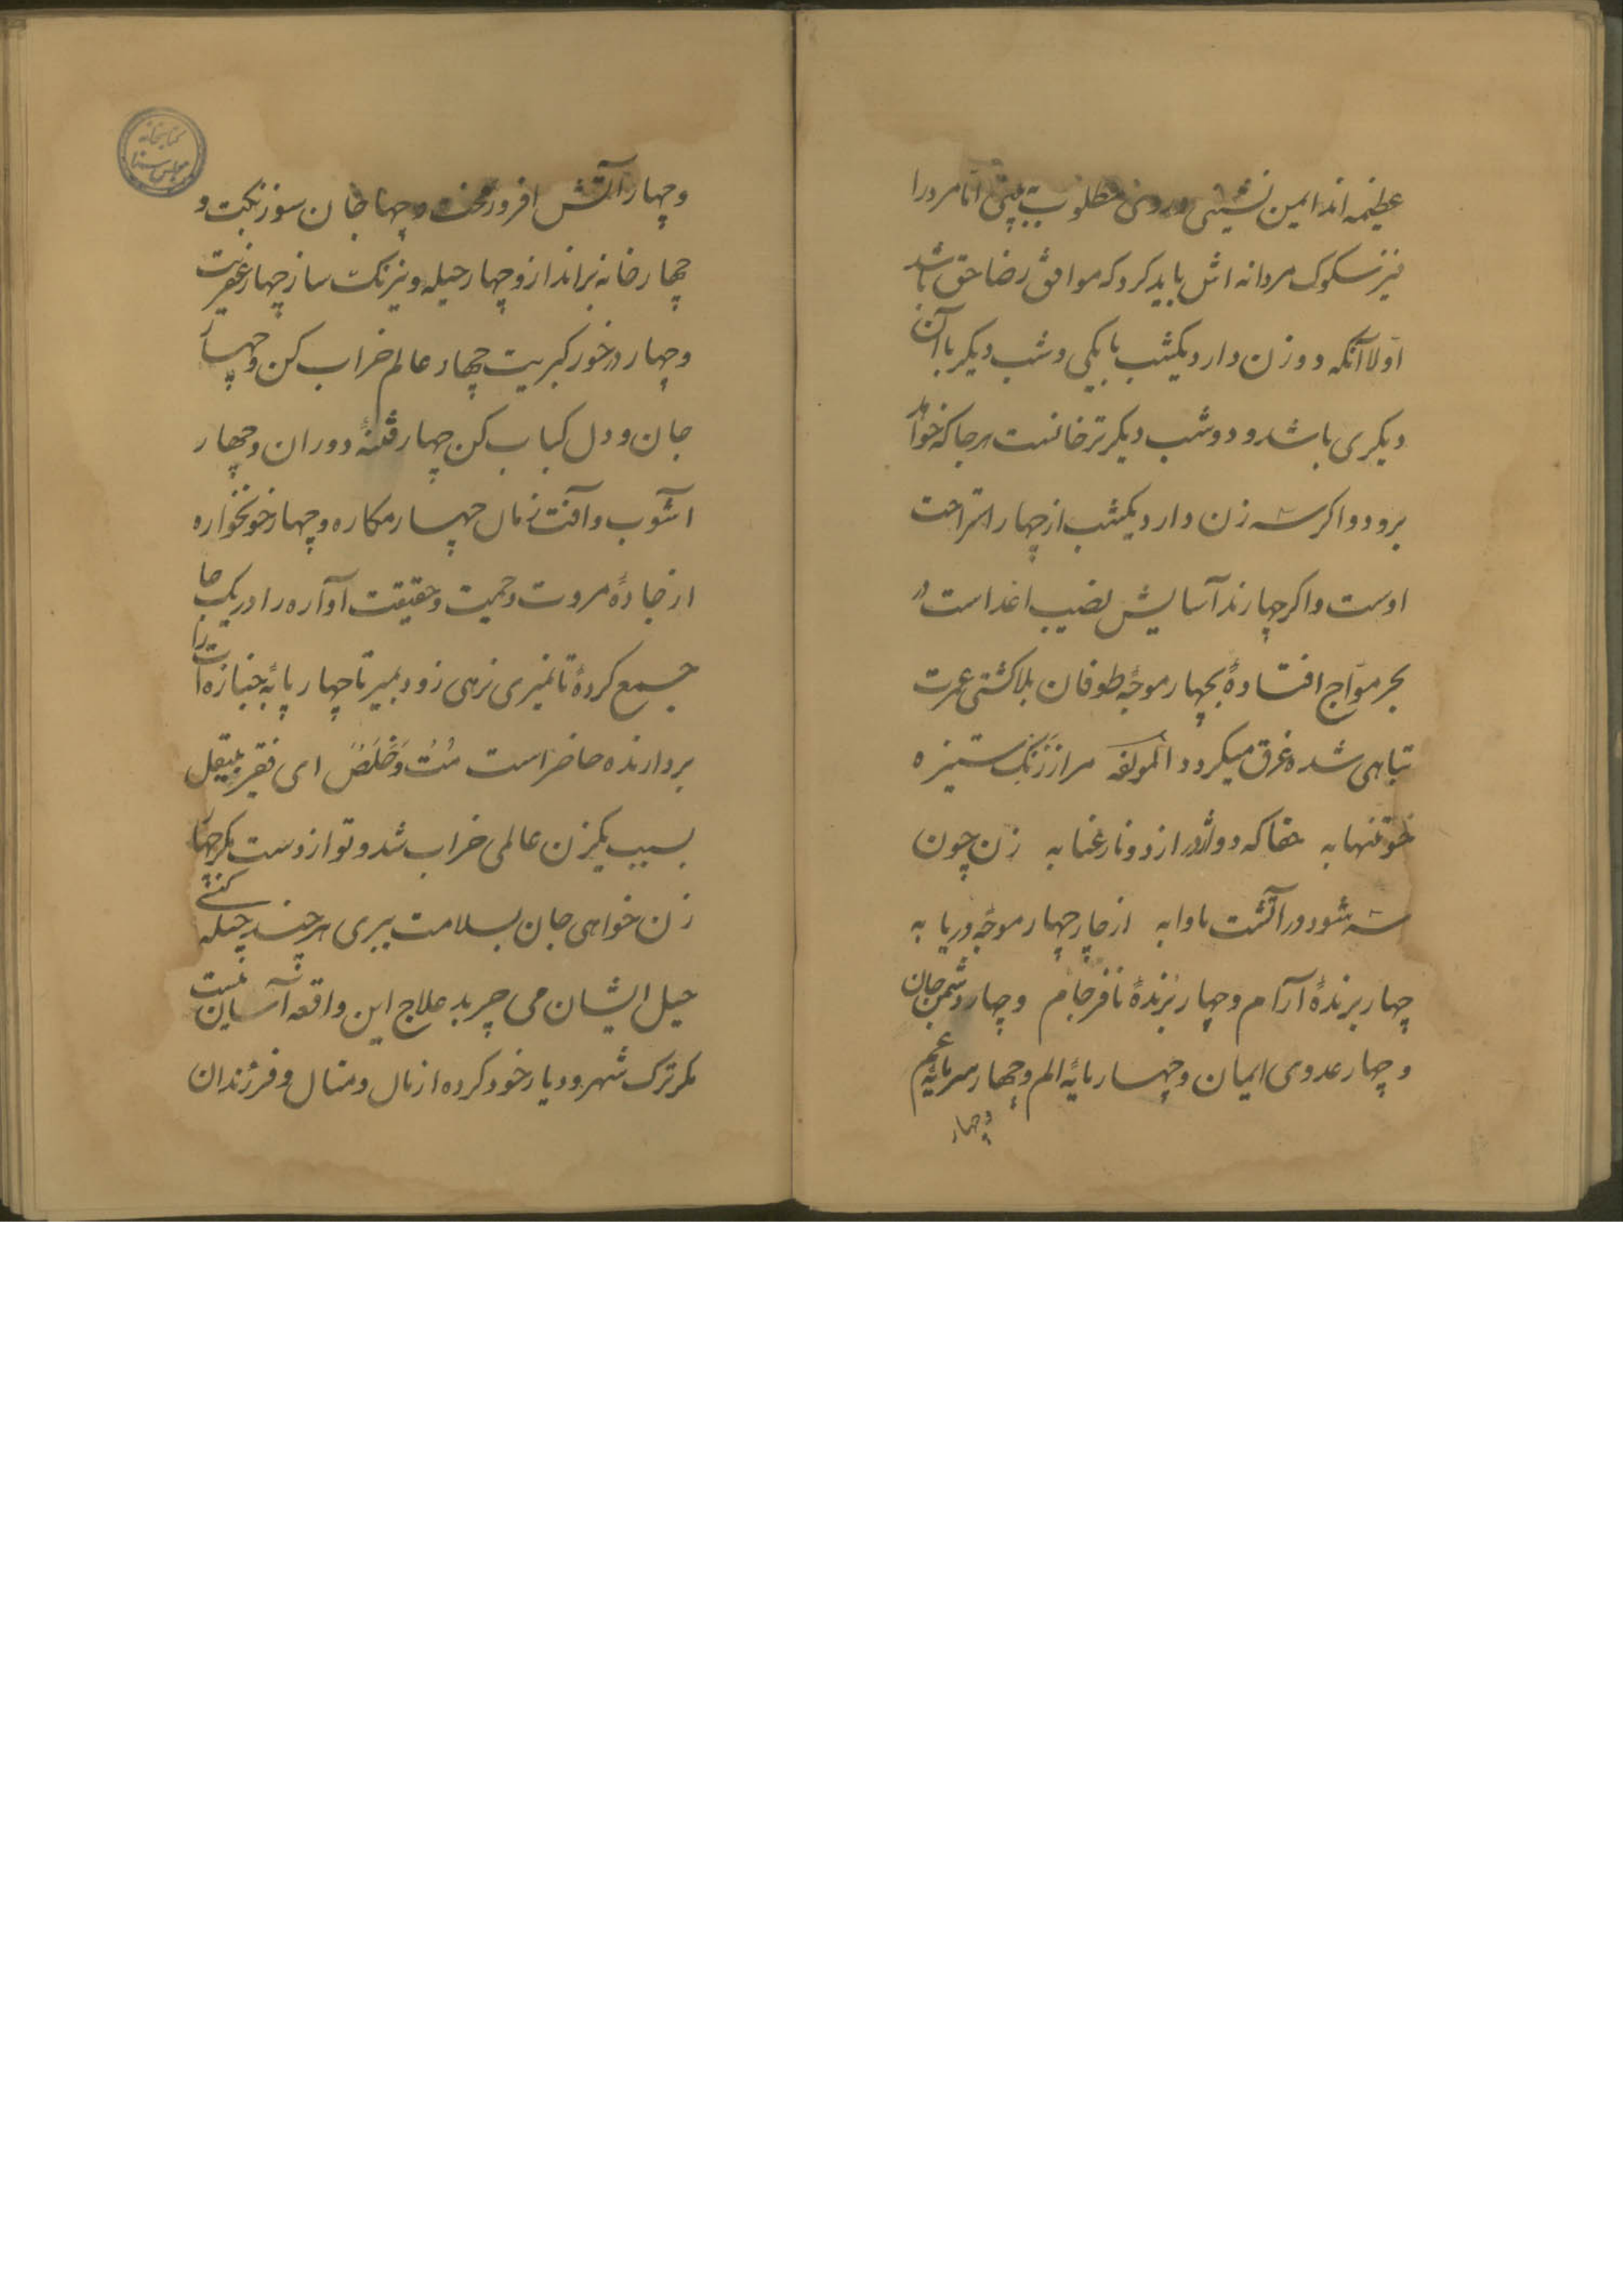 عظیمه اند ایمن نشینی و روی مطلوب بینی اما مرد را
نیز سکوک مردانه اش باید کرد که موافق رضا حق باشد
اولا آنکه دو زن دارد یکشب با یکی و شب دیکر با آن
دیکری باشد و دو شب دیکر ترخانست هر جا که خواهد
برود و اکر سه زن دارد یکشب از چهار استراحت
اوست و اکر چهارند آسایش نصیب اعداست در
بحر مواج افتادهٔ بچهار موجهٔ طوفان بلا کشتی عمرت
تباهی شده غرق میکردد المولفه مرا از زنک ستیزه
خو تنها به حقا که دو اژدر از دو نار عنا به زن چون
سه شود در آتشت ماوا به از چار چهار موجهٔ دریا به
چهار برندهٔ آرام و چهار بزندهٔ نافرجام و چهار دشمن جان
و چهار عدوی ایمان و چهار مایهٔ الم و چهار سرمایهٔ غم
و چهار
کتابخانه
مجلس سنا
و چهار آتش افروز محنت و چهار جان سوز نکبت و
چهار خانه برانداز و چهار حیله و نیرنک ساز چهار عفریت
و چهار در خور کبریت چهار عالم خراب کن و چهار
جان و دل کباب کن چهار فتنهٔ دوران و چهار
آشوب و آفت زمان چهار مکاره و چهار خونخواره
از جادهٔ مروت و حمیت و حقیقت آواره را در یک جا
جمع کردهٔ تا نمیری نرهی زود بمیر تا چهار پایهٔ جنازه ات را
بردارنده حاضر است مُت وَخَلَص ای فقیر بیعقل
بسبب یکزن عالمی خراب شد و تو از دست مکر چهار
زن خواهی جان بسلامت ببری هر چند حیله کنی
حیل ایشان می چربد علاج این واقعه آسان نیست
مکر ترک شهر و دیار خود کرده از مال و منال و فرزندان